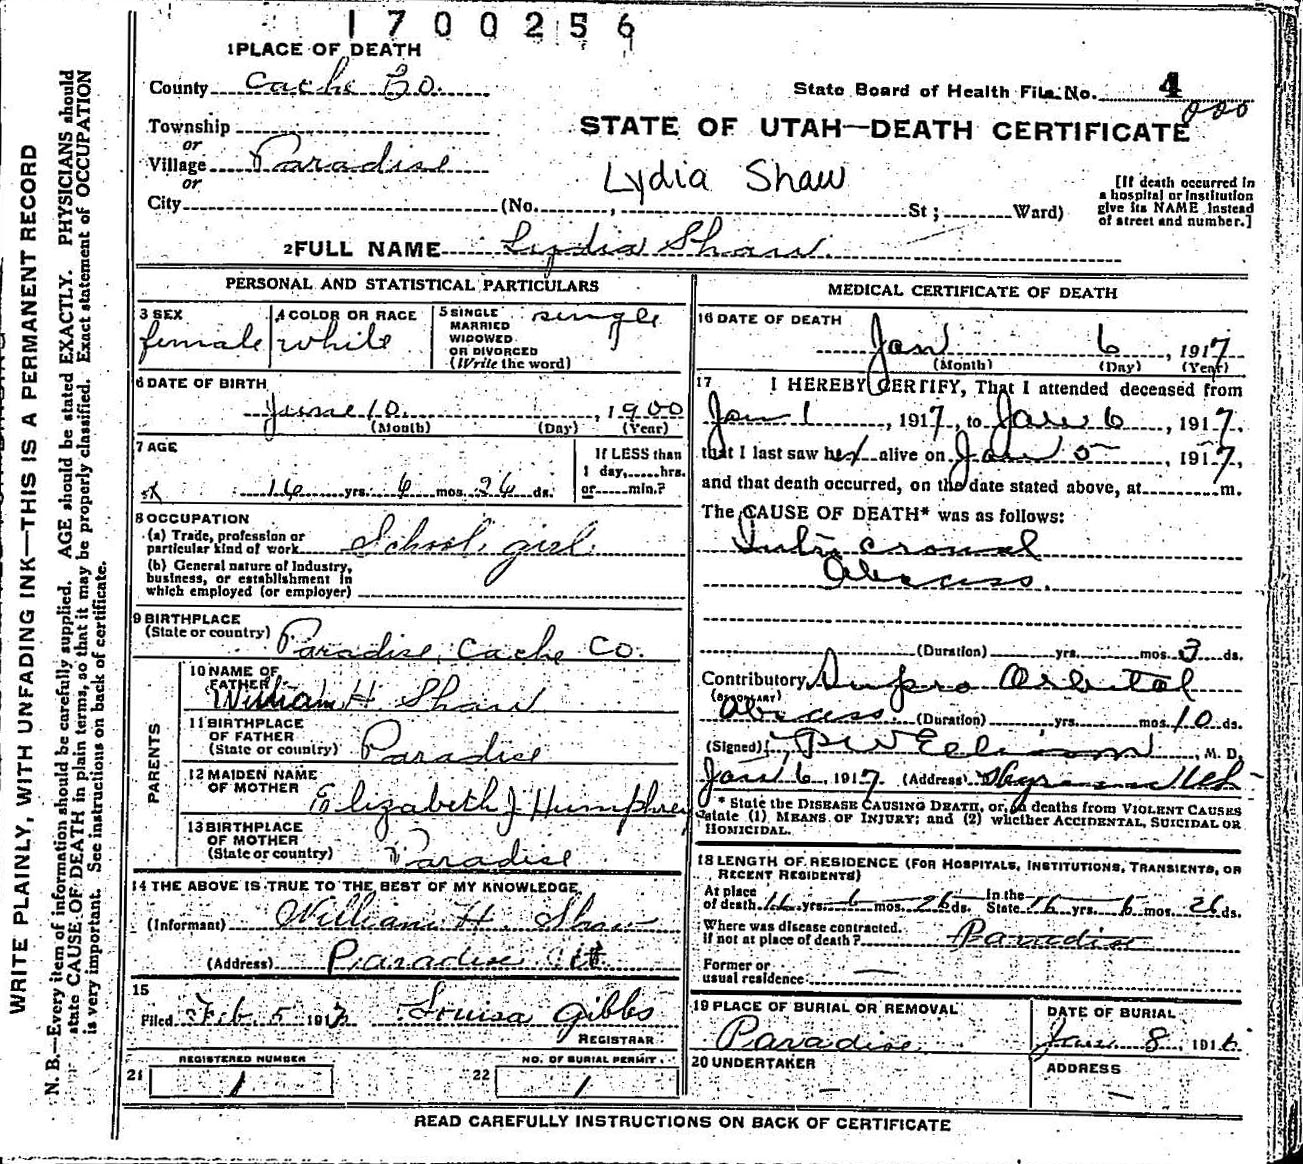 1700256
1 PLACE OF DEATH
County Cache Co.
State Board of Health File No. 4
000
Township
or
Village Paradise
or
City (No. , St ; Ward)
STATE OF UTAH—DEATH CERTIFICATE
Lydia Shaw
[If death occurred in
a hospital or institution
give its NAME instead
of street and number.]
2 FULL NAME Lydia Shaw.
PERSONAL AND STATISTICAL PARTICULARS
3 SEX
female
4 COLOR OR RACE
white
5 SINGLE
MARRIED
WIDOWED
OR DIVORCED
(Write the word)
single
6 DATE OF BIRTH
June 10 , 1900
(Month) (Day) (Year)
7 AGE
16 yrs. 6 mos. 26 ds.
If LESS than
1 day, hrs.
or min.?
8 OCCUPATION
(a) Trade, profession or
particular kind of work School girl
(b) General nature of Industry,
business, or establishment in
which employed (or employer)
9 BIRTHPLACE
(State or country) Paradise, Cache Co.
PARENTS
10 NAME OF
FATHER
William H. Shaw
11 BIRTHPLACE
OF FATHER
(State or country) Paradise
12 MAIDEN NAME
OF MOTHER
Elizabeth J Humphrey
13 BIRTHPLACE
OF MOTHER
(State or country) Paradise
14 THE ABOVE IS TRUE TO THE BEST OF MY KNOWLEDGE
(Informant) William H. Shaw
(Address) Paradise Ut
15
Filed Feb 5 1917 Louisa Gibbs
REGISTRAR
REGISTERED NUMBER
21 1
NO. OF BURIAL PERMIT
22 1
MEDICAL CERTIFICATE OF DEATH
16 DATE OF DEATH
Jan 6 , 1917
(Month) (Day) (Year)
17 I HEREBY CERTIFY, That I attended deceased from
Jan 1 , 1917, to Jan 6 , 1917.
that I last saw her alive on Jan 5 , 1917,
and that death occurred, on the date stated above, at m.
The CAUSE OF DEATH* was as follows:
Abscess.
(Duration) yrs. mos. 3 ds.
Contributory Supra Orbital
(SECONDARY)
Abscess. (Duration) yrs. mos. 10 ds.
(Signed) , M. D.
Jan 6, 1917 (Address)
* State the DISEASE CAUSING DEATH, or, in deaths from VIOLENT CAUSES
state (1) MEANS OF INJURY; and (2) whether ACCIDENTAL, SUICIDAL OR
HOMICIDAL.
18 LENGTH OF RESIDENCE (FOR HOSPITALS, INSTITUTIONS, TRANSIENTS, OR
RECENT RESIDENTS)
At place
of death 16 yrs. 6 mos. 26 ds. In the
State 16 yrs. 6 mos. 26 ds.
Where was disease contracted,
if not at place of death? Paradise
Former or
usual residence —
19 PLACE OF BURIAL OR REMOVAL
Paradise
DATE OF BURIAL
Jan 8, 191
20 UNDERTAKER
—
ADDRESS
—
READ CAREFULLY INSTRUCTIONS ON BACK OF CERTIFICATE
WRITE PLAINLY, WITH UNFADING INK—THIS IS A PERMANENT RECORD
N. B.—Every item of information should be carefully supplied. AGE should be stated EXACTLY. PHYSICIANS should
state CAUSE OF DEATH in plain terms, so that it may be properly classified. Exact statement of OCCUPATION
is very important. See instructions on back of certificate.